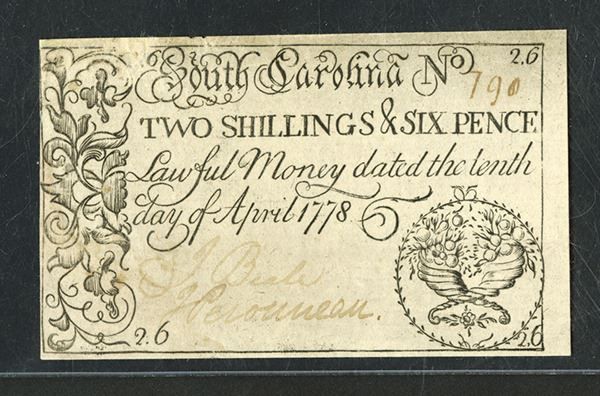 South Carolina No 790 2.6
TWO SHILLINGS & SIX PENCE
Lawful Money dated the tenth
day of April 1778
J Beale
J Peronneau.
2.6 2.6